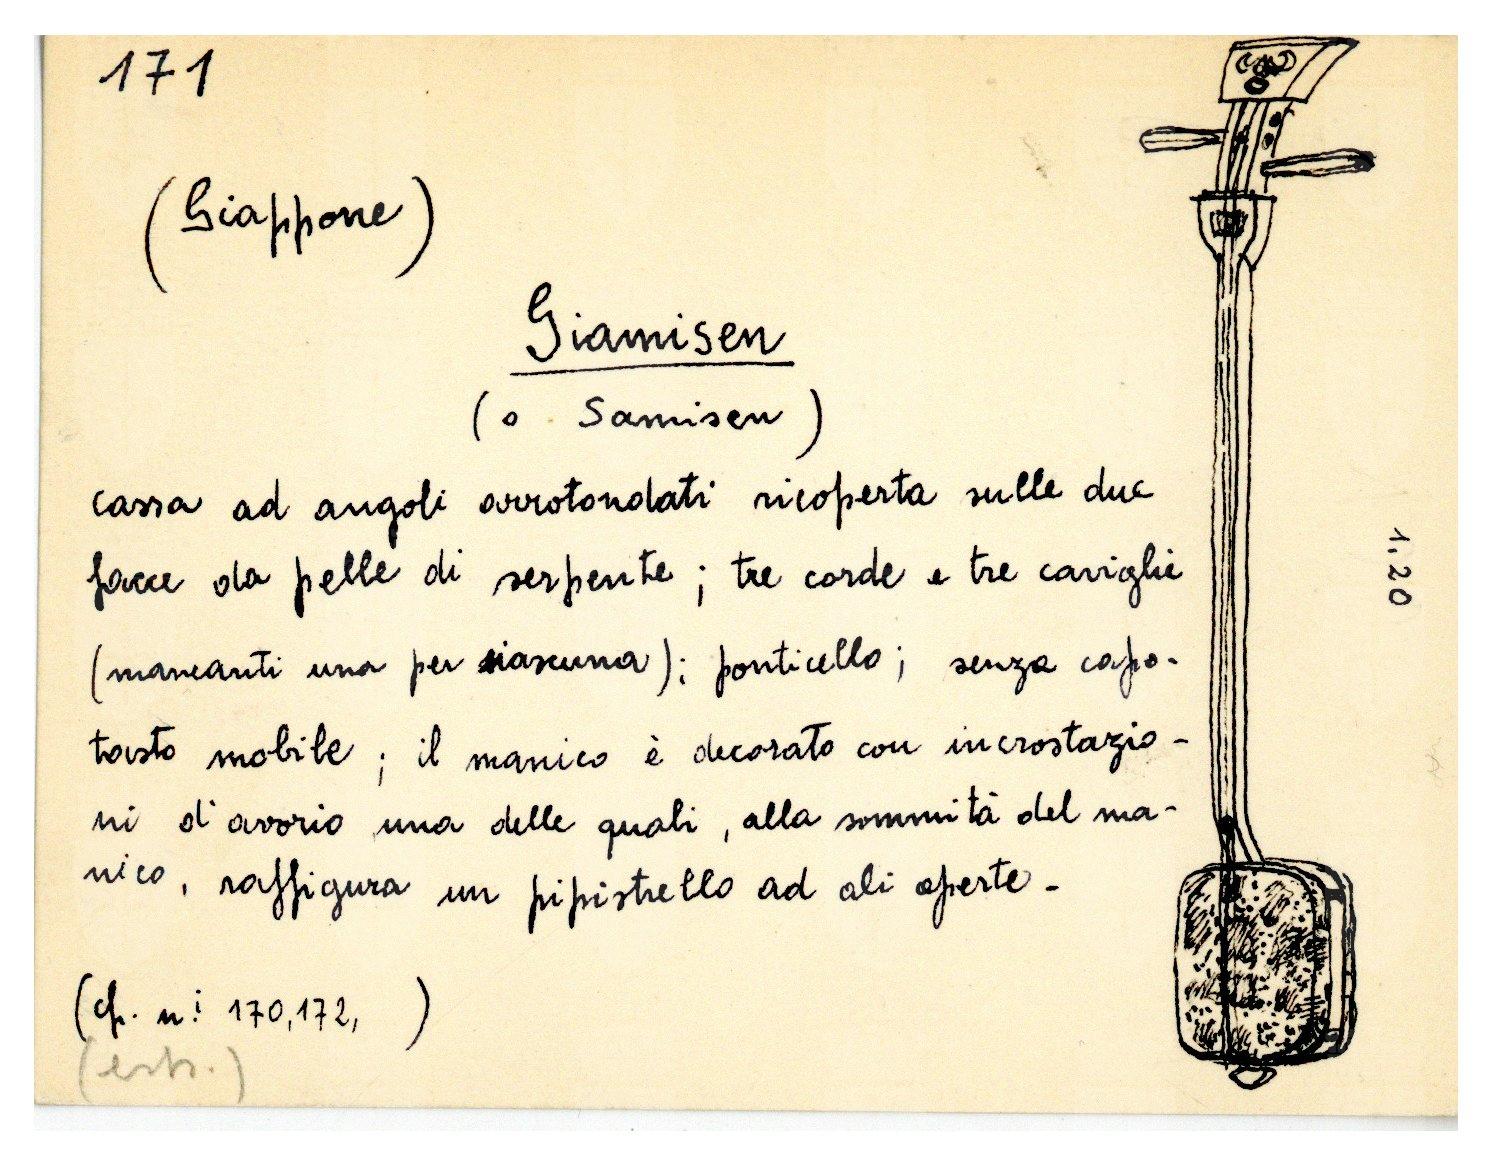 171
(Giappone)
Giamisen
(o Samisen)
cassa ad angoli arrotondati ricoperta sulle due
facce da pelle di serpente; tre corde e tre caviglie
(mancanti una per ciascuna); ponticello; senza capo-
tasto mobile; il manico è decorato con incrostazio-
ni d'avorio una delle quali, alla sommità del ma-
nico, raffigura un pipistrello ad ali aperte -
1,20
(cf. ni 170,172, )